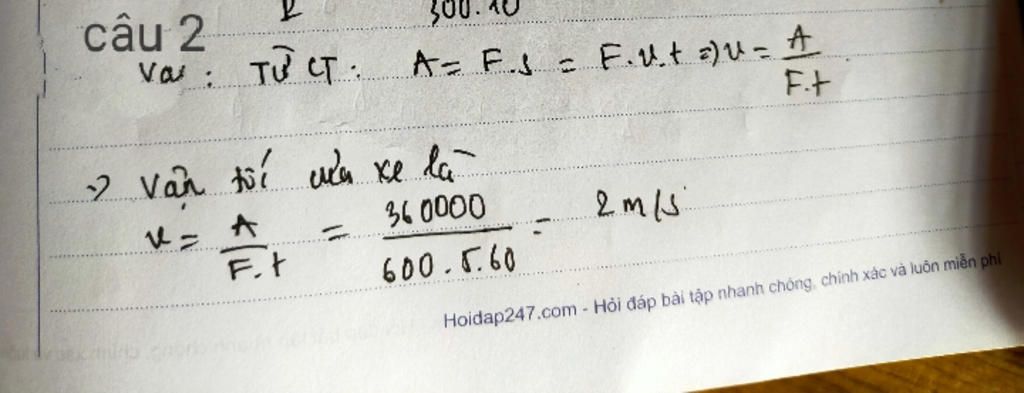 2 300.10
câu 2
Từ CT: A = F.s = F.v.t => v = A / F.t
=> Vận tốc của xe là
v = A / F.t = 360000 / 600.5.60 = 2 m/s
Hoidap247.com - Hỏi đáp bài tập nhanh chóng, chính xác và luôn miễn phí